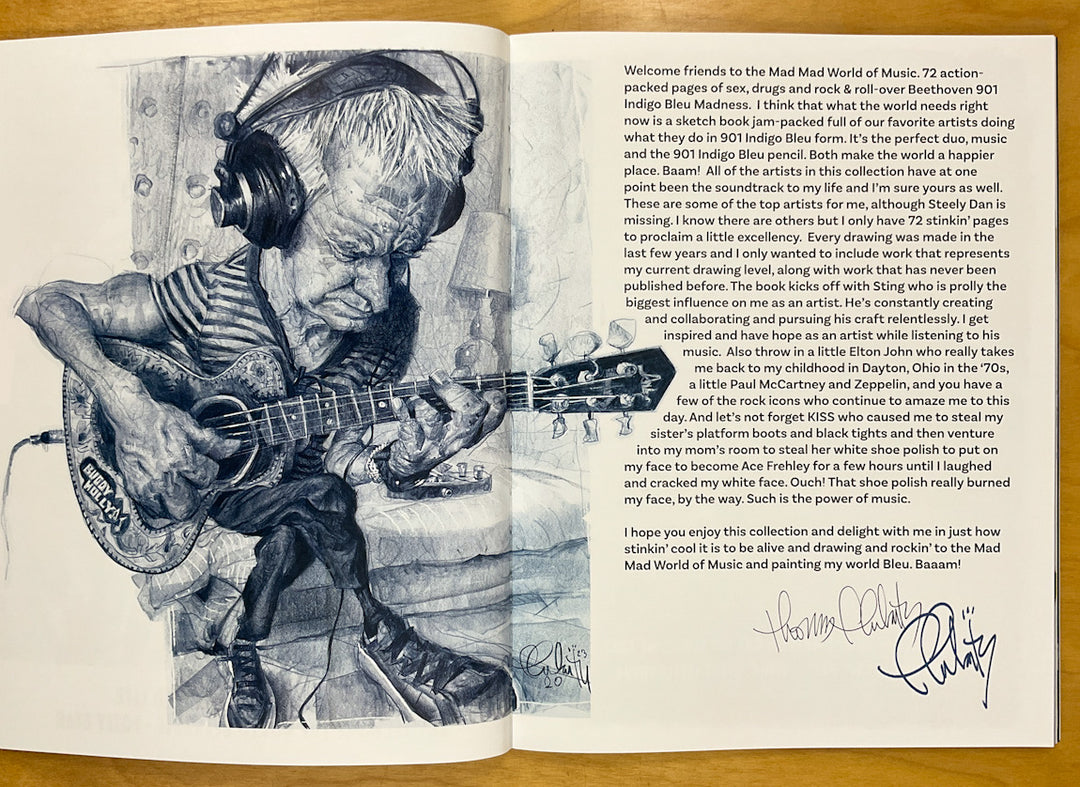 BUDDY
HOLLY
Welcome friends to the Mad Mad World of Music. 72 action-
packed pages of sex, drugs and rock & roll-over Beethoven 901
Indigo Bleu Madness. I think that what the world needs right
now is a sketch book jam-packed full of our favorite artists doing
what they do in 901 Indigo Bleu form. It's the perfect duo, music
and the 901 Indigo Bleu pencil. Both make the world a happier
place. Baam! All of the artists in this collection have at one
point been the soundtrack to my life and I'm sure yours as well.
These are some of the top artists for me, although Steely Dan is
missing. I know there are others but I only have 72 stinkin' pages
to proclaim a little excellency. Every drawing was made in the
last few years and I only wanted to include work that represents
my current drawing level, along with work that has never been
published before. The book kicks off with Sting who is prolly the
biggest influence on me as an artist. He's constantly creating
and collaborating and pursuing his craft relentlessly. I get
inspired and have hope as an artist while listening to his
music. Also throw in a little Elton John who really takes
me back to my childhood in Dayton, Ohio in the '70s,
a little Paul McCartney and Zeppelin, and you have a
few of the rock icons who continue to amaze me to this
day. And let's not forget KISS who caused me to steal my
sister's platform boots and black tights and then venture
into my mom's room to steal her white shoe polish to put on
my face to become Ace Frehley for a few hours until I laughed
and cracked my white face. Ouch! That shoe polish really burned
my face, by the way. Such is the power of music.
I hope you enjoy this collection and delight with me in just how
stinkin' cool it is to be alive and drawing and rockin' to the Mad
Mad World of Music and painting my world Bleu. Baaam!